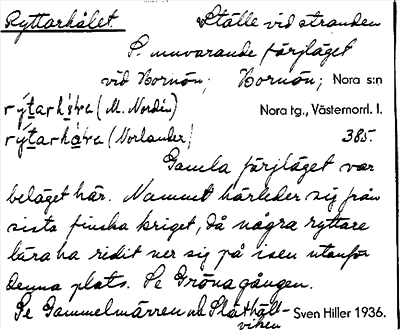 Ryttarhålet Ställe vid stranden
S. nuvarande färjläget
vid Hornön; Hornön; Nora s:n
(M. Nordin) Nora tg., Västernorrl. l.
(Norlander) 385.
Gamla färjläget var
beläget här. Namnet härleder sig från
sista finska kriget, då några ryttare
lära ha ridit ner sig på isen utanför
denna plats. Se Gröna gången.
Se Gammelmärren och Slåthäll-
viken Sven Hiller 1936.